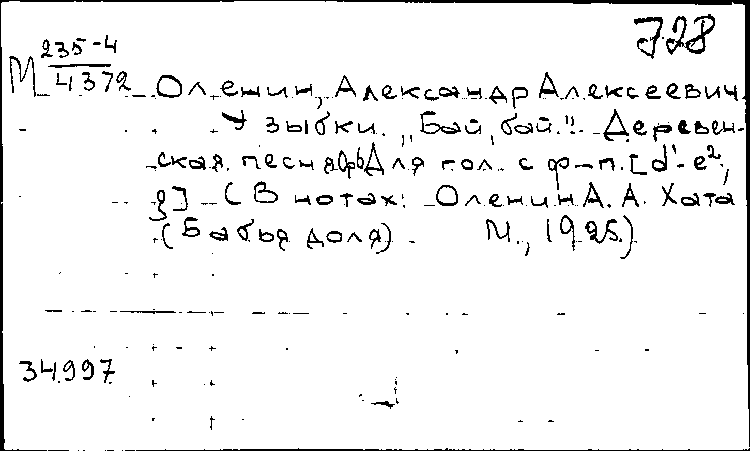 728
М 235-4
4372
Оленин, Александр Алексеевич.
У зыбки. „Бай, бай." Деревен-
ская песня Для гол. с ф-п. [d'-e²,
з] (В нотах: Оленин А. А. Хата
(Бабья доля). М., 1925.)
34997